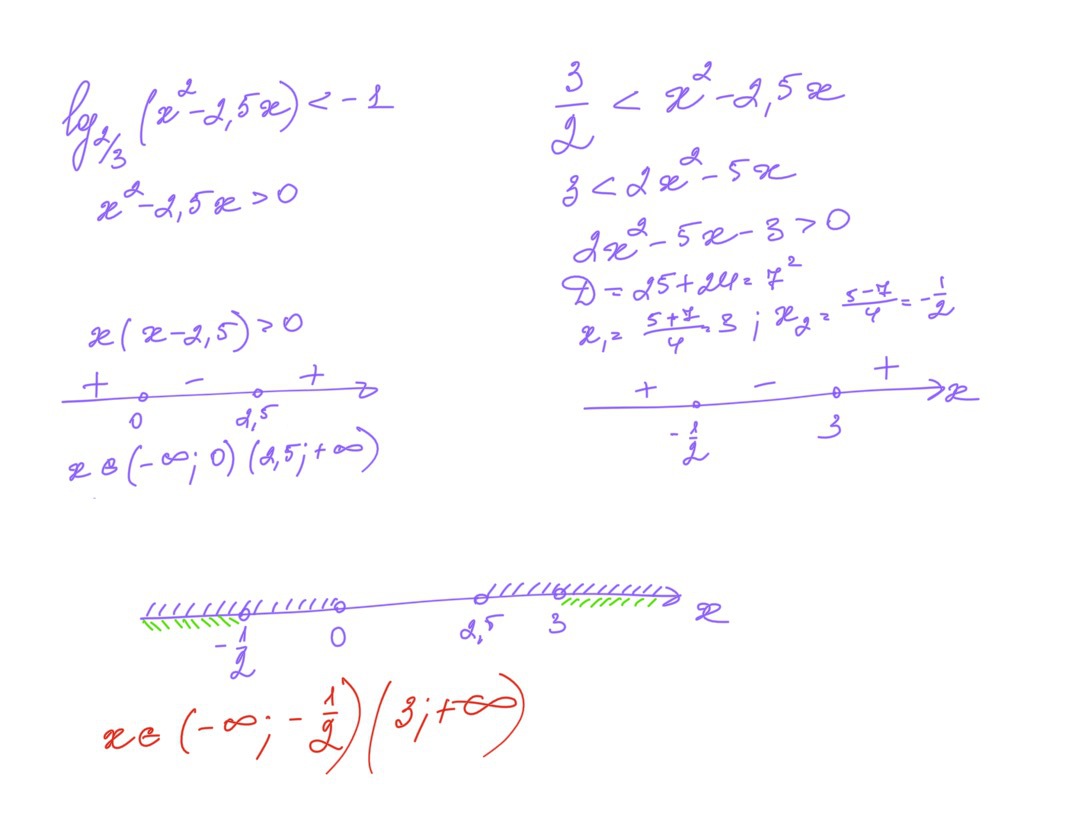 log_{2/3} (x² - 2,5x) < -1
x² - 2,5x > 0
x(x - 2,5) > 0
+ - +
0 2,5
x ∈ (-∞; 0) (2,5; +∞)
3/2 < x² - 2,5x
3 < 2x² - 5x
2x² - 5x - 3 > 0
D = 25 + 24 = 7²
x₁ = (5+7)/4 = 3 ; x₂ = (5-7)/4 = -1/2
+ - + x
-1/2 3
x
-1/2 0 2,5 3
x ∈ (-∞; -1/2) (3; +∞)